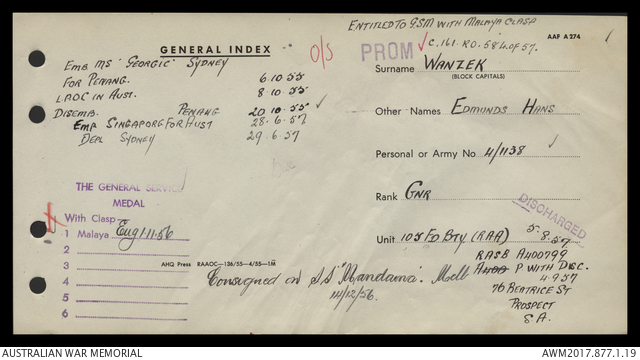 ENTITLED TO GSM WITH MALAYA CLASP
C.161. R.O. 584 of 57.
AAF A 274
GENERAL INDEX
O/S
PROM
EMB MS "GEORGIC" SYDNEY
FOR PENANG. 6.10.55
L.POC IN AUST. 8.10.55
DISEMB. PENANG 20.10.55
EMB SINGAPORE FOR AUST 28.6.57
DEPL SYDNEY 29.6.57
Surname WANZEK
(BLOCK CAPITALS)
Other Names EDMUNDS HANS
Personal or Army No 4/1138
Rank GNR
DISCHARGED
5.8.57
Unit 105 FD BTY (RAA)
RASB A400799
P WITH DEC.
4.9.57
76 BEATRICE ST
PROSPECT
S.A.
THE GENERAL SERVICE
MEDAL
With Clasp
1 Malaya Eng 1.11.56
2
3
4
5
6
AHQ Press RAAOC—136/55—4/55—1M
Consigned on S.S. "Mandama". Melb
14/12/56.
AUSTRALIAN WAR MEMORIAL
AWM2017.877.1.19